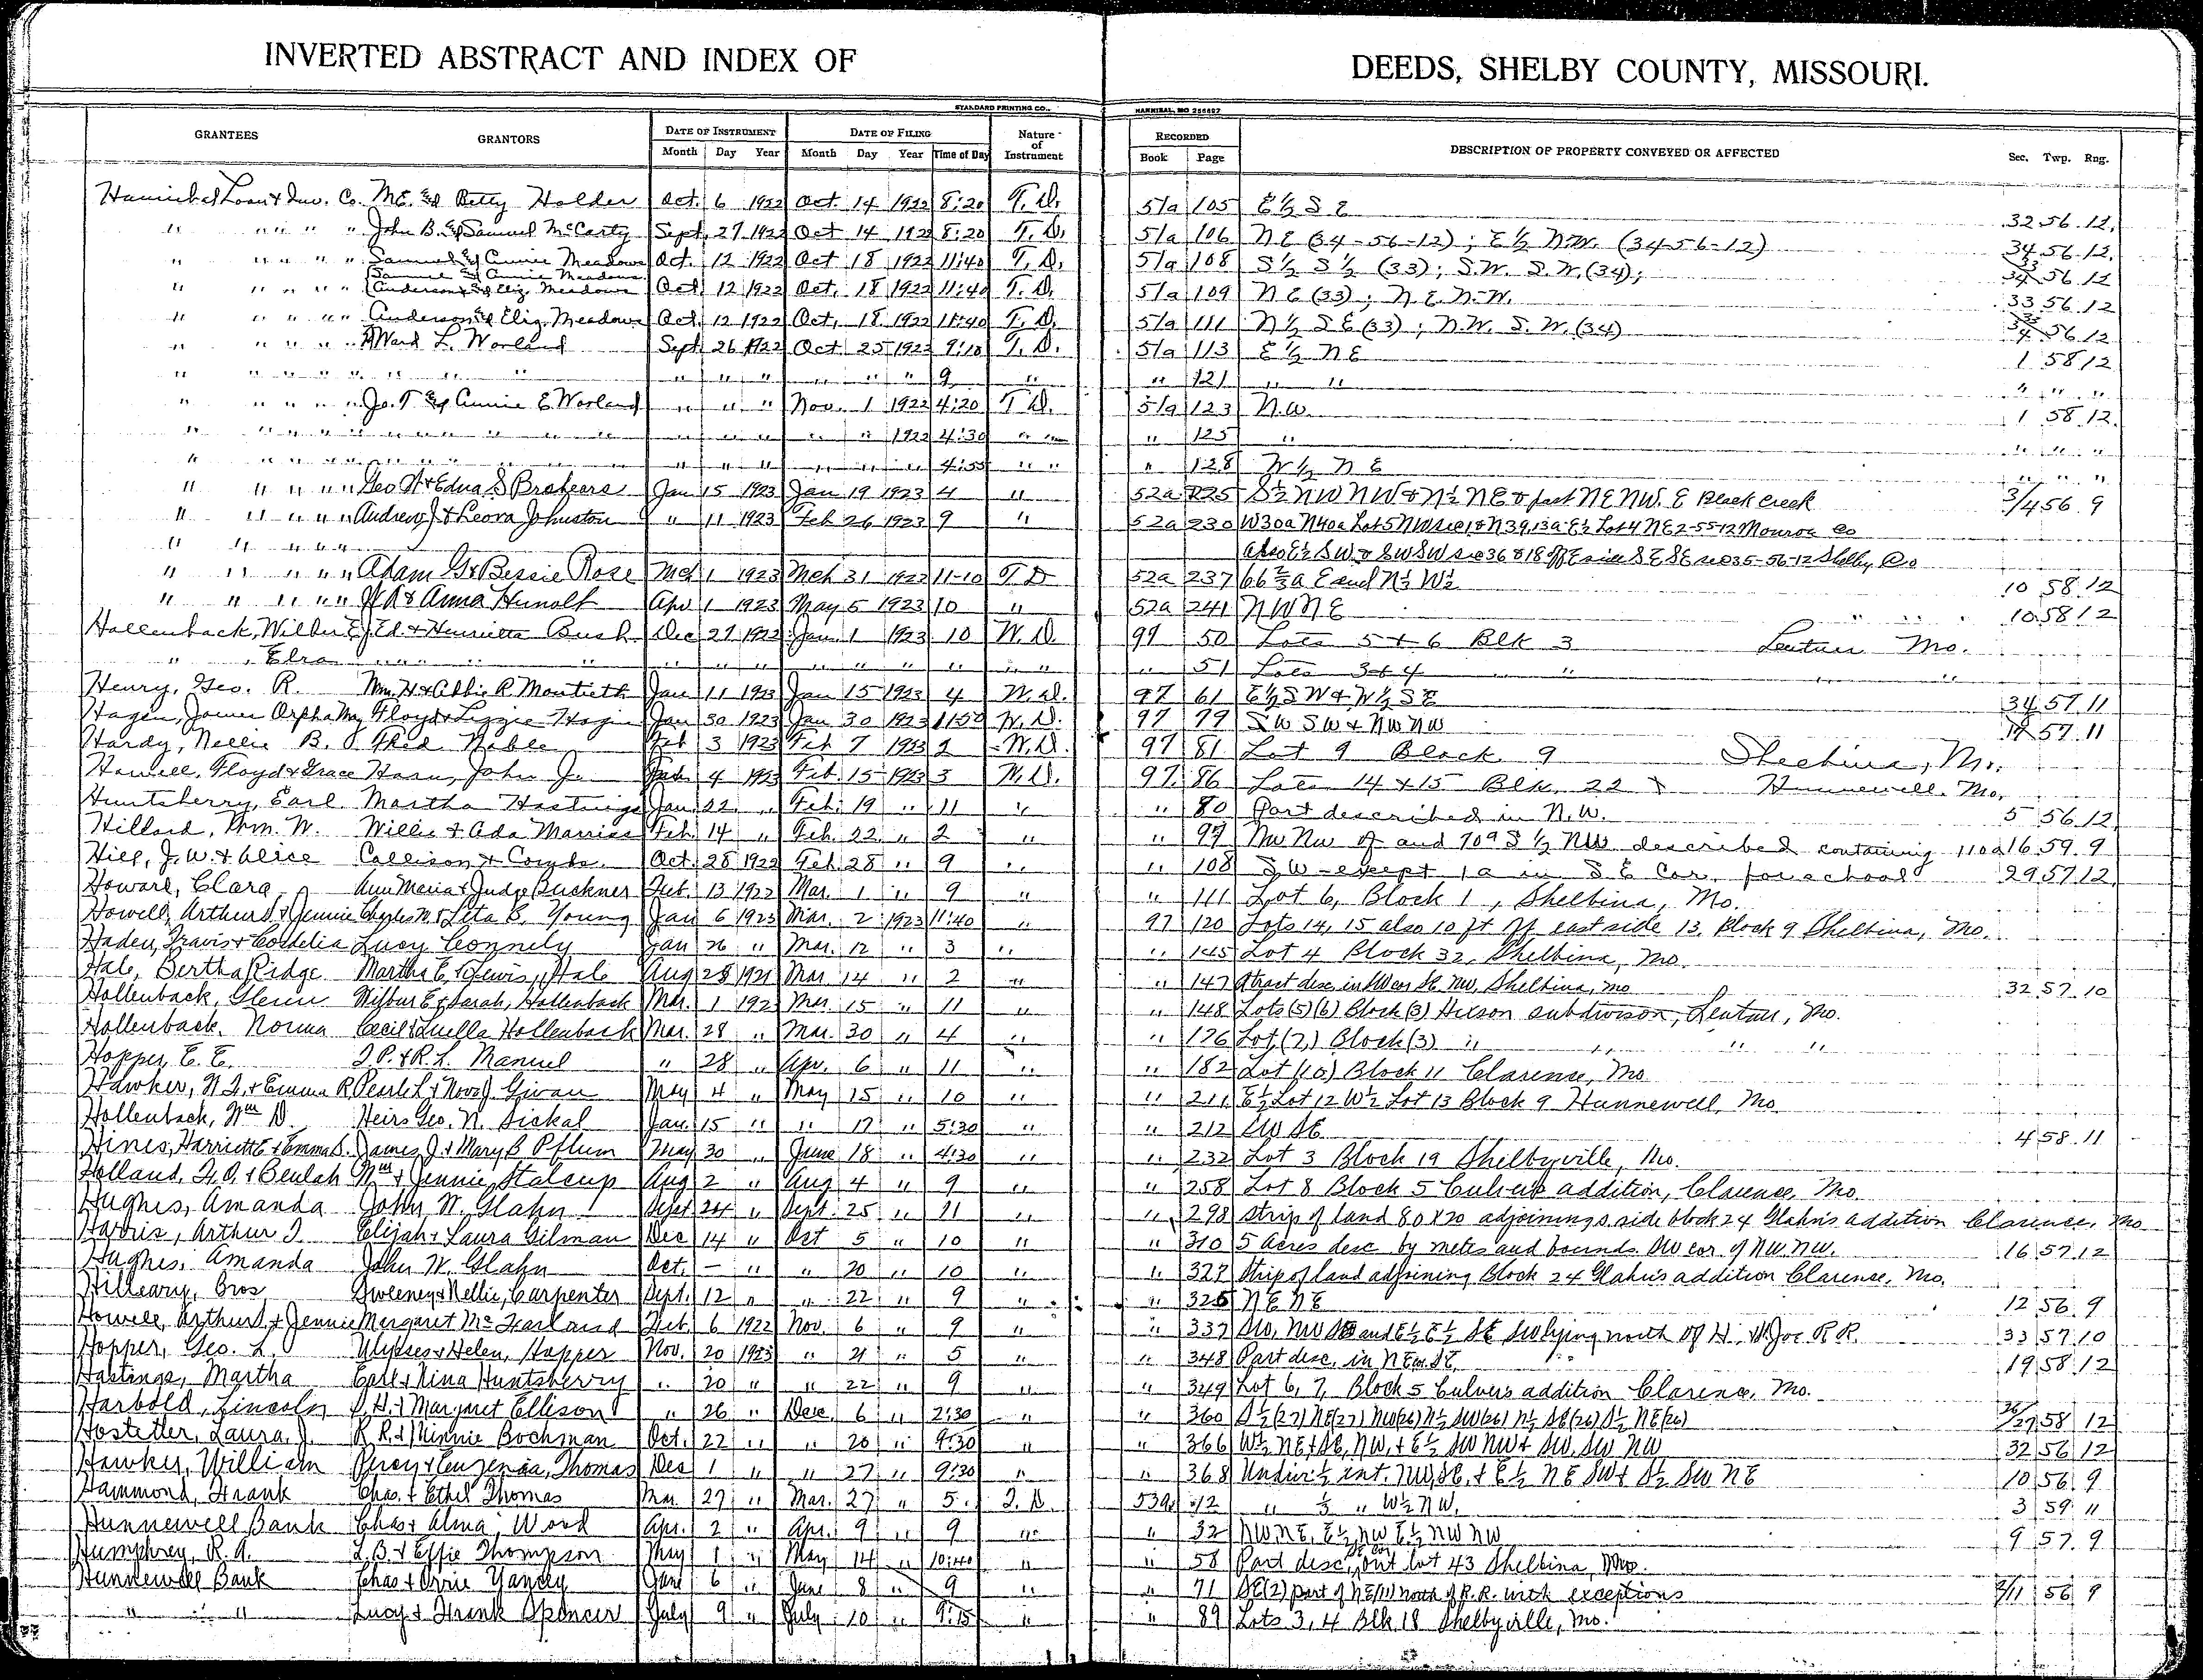 INVERTED ABSTRACT AND INDEX OF DEEDS, SHELBY COUNTY, MISSOURI.
STANDARD PRINTING CO., HANNIBAL, MO 255627
GRANTEES GRANTORS DATE OF INSTRUMENT DATE OF FILING Nature of Instrument RECORDED DESCRIPTION OF PROPERTY CONVEYED OR AFFECTED Sec. Twp. Rng.
Month Day Year Month Day Year Time of Day Book Page
Hannibal Loan & Inv. Co. M.E. & Betty Holder Oct. 6 1922 Oct 14 1922 8:20 T.D. 51a 105 E½ S E 32 56 12
" " " " " John B. & Samuel McCarty Sept. 27 1922 Oct 14 1922 8:20 T.D. 51a 106 NE (34-56-12); E½ N.W. (34-56-12) 34 56 12
" " " " " Samuel & Annie Meadows Oct. 12 1922 Oct 18 1922 11:40 T.D. 51a 108 S½ S½ (33); S.W. S.W. (34); 33/34 56 12
" " " " " Samuel & Annie Meadows Anderson & Eliz. Meadows Oct 12 1922 Oct. 18 1922 11:40 T.D. 51a 109 N E (33); N.E. N.W. 33 56 12
" " " " " Anderson & Eliz. Meadows Oct. 12 1922 Oct. 18 1922 11:40 T.D. 51a 111 N½ S E (33); N.W. S.W. (34) 33/34 56 12
" " " " " Ward L. Worland Sept 26 1922 Oct 25 1922 9:10 T.D. 51a 113 E½ N E 1 58 12
" " " " " " " " " " " " " " 9 " " 121 " " " " "
" " " " " Jo. T. & Annie E Worland " " " Nov. 1 1922 4:20 T D. 51a 123 N.W. 1 58 12
" " " " " " " " " " " " " " " " 1922 4:30 " " " 125 " " " "
" " " " " " " " " " " " " " " " " 4:55 " " " 128 W½ N E " " "
" " " " " Geo W & Edna S Brokeers Jan 15 1923 Jan 19 1923 4 " 52a 225 S½ NW NW & N½ NE & part NE NW. E Black Creek 3/4 56 9
" " " " " Andrew J & Leora Johnston " 11 1923 Feb 26 1923 9 " 52a 230 W30a N40a Lot 5 NW sec 1 & N39.13a E½ Lot 4 NE 2-55-12 Monroe Co
" " " " " also E½ SW & SW SW sec 36 & 18 off E side SE SE sec 35-56-12 Shelby Co
" " " " " Adam G & Bessie Rose Mch 1 1923 Mch 31 1923 11-10 T D 52a 237 66⅔a E end N½ W½ 10 58 12
" " " " " & Anna Hunolt Apr 1 1923 May 5 1923 10 " 52a 241 NWNE 10 58 12
Hollenback, Wilbur E J. Ed. & Henrietta Bush Dec 27 1922 Jan. 1 1923 10 W.D. 97 50 Lots 5 & 6 Blk 3 Lentner Mo.
" Elra " " " " " " " " " " " " " 51 Lots 3 & 4 " "
Henry, Geo. R. Wm. H & Abbie R. Montieth Jan 11 1923 Jan 15 1923 4 W.D. 97 61 E½ S W & W½ S E 34 57 11
Hagen, James Orpha May Floyd & Lizzie Hagin Jan 30 1923 Jan 30 1923 11:50 W.D. 97 79 SW SW & NW NW 57 11
Hardy, Nellie B. Fred Noble Feb 3 1923 Feb 7 1923 2 W.D. 97 81 Lot 9 Block 9 Shelbina, Mo.
Howell, Floyd & Grace Hasn, John J. Feb 4 1923 Feb. 15 1923 3 W.D. 97 86 Lots 14 & 15 Blk. 22 Hunnewell, Mo.
Huntsberry, Earl Martha Hastings Jan. 22 " Feb. 19 " 11 " " 80 Part described in N.W. 5 56 12
Hillard, Wm. W. Willie & Ada Marriss Feb. 14 " Feb. 22 " 2 " " 99 NW NW of and 70a S½ NW described containing 110a 16 59 9
Hill, J.W. & Alice Collison & Combs Oct. 28 1922 Feb 28 " 9 " " 108 S W except 1a in S E Cor. for school 29 57 12
Howard, Clara Ann Maria & Judge Buckner Feb. 13 1922 Mar. 1 " 9 " " 111 Lot 6, Block 1, Shelbina, Mo.
Howell, Arthur S. & Jennie Charles M. & Leta B. Young Jan 6 1923 Mar. 2 1923 11:40 " 97 120 Lots 14, 15 also 10 ft off east side 13, Block 9 Shelbina, Mo.
Haden, Travis & Cordelia Lucy Connely Jan 26 " Mar. 12 " 3 " " 145 Lot 4 Block 32, Shelbina, Mo.
Hale, Bertha Ridge Martha E. & Lewis, Hale Aug 28 1921 Mar 14 " 2 " " 147 A tract desc in SW cor SE NW, Shelbina, Mo 32 57 10
Hollenback, Glenn Wilbur E & Sarah, Hollenback Mar. 1 192 Mar. 15 " 11 " " 148 Lots (5) (6) Block (3) Hixson subdivison, Lentner, Mo.
Hollenback, Norma Cecil & Luella Hollenback Mar. 28 " Mar. 30 " 4 " " 176 Lot (7) Block (3) " " " "
Hopper, E. E. I.P. & R.L. Manuel " 28 " Apr. 6 " 11 " " 182 Lot (10) Block 11 Clarence, Mo
Hawker, W.I. & Emma R Pearle L & Nova J. Givan May 4 " May 15 " 10 " " 211 E½ Lot 12 W½ Lot 13 Block 9 Hunnewell, Mo
Hollenback, Wm D. Heirs Geo. N. Sickal Jan. 15 " " 17 " 5:30 " " 212 SW SE 4 58 11
Hines, Harriett E & Emma S. James J. & Mary B Pflum May 30 " June 18 " 4:30 " " 232 Lot 3 Block 19 Shelbyville, Mo.
Holland, F.O. & Beulah Wm & Jennie Stalcup Aug 2 " Aug 4 " 9 " " 258 Lot 8 Block 5 Culvers addition, Clarence, Mo.
Hughes, Amanda John W. Glahn Sept 24 " Sept. 25 " 11 " " 298 Strip of land 80 x 20 adjoining s. side block 24 Glahn's addition Clarence, Mo
Harris, Arthur I. Elijah & Laura Gilman Dec 14 " Oct 5 " 10 " " 310 5 Acres desc by metes and bounds SW cor. of NW. NW. 16 57 12
Hughes, Amanda John W. Glahn Oct. - " " 20 " 10 " " 327 Strip of land adjoining Block 24 Glahn's addition Clarence, Mo.
Hilleary, Bros Sweeney & Nellie, Carpenter Sept. 12 " " 22 " 9 " " 325 NE NE 12 56 9
Howell, Arthur S. & Jennie Margaret McFarland Feb. 6 1922 Nov. 6 " 9 " " 337 SW, NW SE and E½ E½ SE SW lying north of H. & St. Joe R R. 33 57 10
Hopper, Geo. L. Ulysses & Helen, Hopper Nov. 20 1923 " 21 " 5 " " 348 Part desc. in NE SE. 19 58 12
Hastings, Martha Earl & Nina Huntsberry " 20 " " 22 " 9 " " 349 Lot 6, 7, Block 5 Culvers addition Clarence, Mo.
Harbold, Lincoln & Margaret Ellison " 26 " Dec. 6 " 2:30 " " 360 S½ (27) NE(27) NW(26) N½ SW(26) N½ SE(26) S½ NE(26) 26/27 58 12
Hostetter, Laura J. R R. & Minnie Bochman Oct. 22 " " 20 " 9:30 " " 366 W½ NE & SE, NW, & E½ SW NW & SW, SW NW 32 56 12
Hawker, William Percy & Eugenia, Thomas Dec 1 " " 27 " 9:30 " " 368 Undiv ½ int. NW, SE, & E½ NE SW & S½ SW NE 10 56 9
Hammond, Frank Chas. & Ethel Thomas Mar. 27 " Mar. 27 " 5 T.D. 53a 12 " ⅓ " W½ NW. 3 59 11
Hunnewell Bank Chas & Alma, Wood Apr. 2 " Apr. 9 " 9 " " 32 NW NE, E½ NW E½ NW NW 9 57 9
Humphrey, R.A. L.B. & Effie Thompson May 1 " May 14 " 10:40 " " 58 Part desc. SE cor out lot 43 Shelbina, Mo.
Hunnewell Bank Chas & Orrie Yancey June 6 " June 8 " 9 " " 71 SE(2) part of NE(11) north of R.R. with exceptions 2/11 56 9
" " Lucy & Frank Spencer July 9 " July 10 " 9:15 " " 89 Lots 3, 4 Blk 18 Shelbyville, Mo.